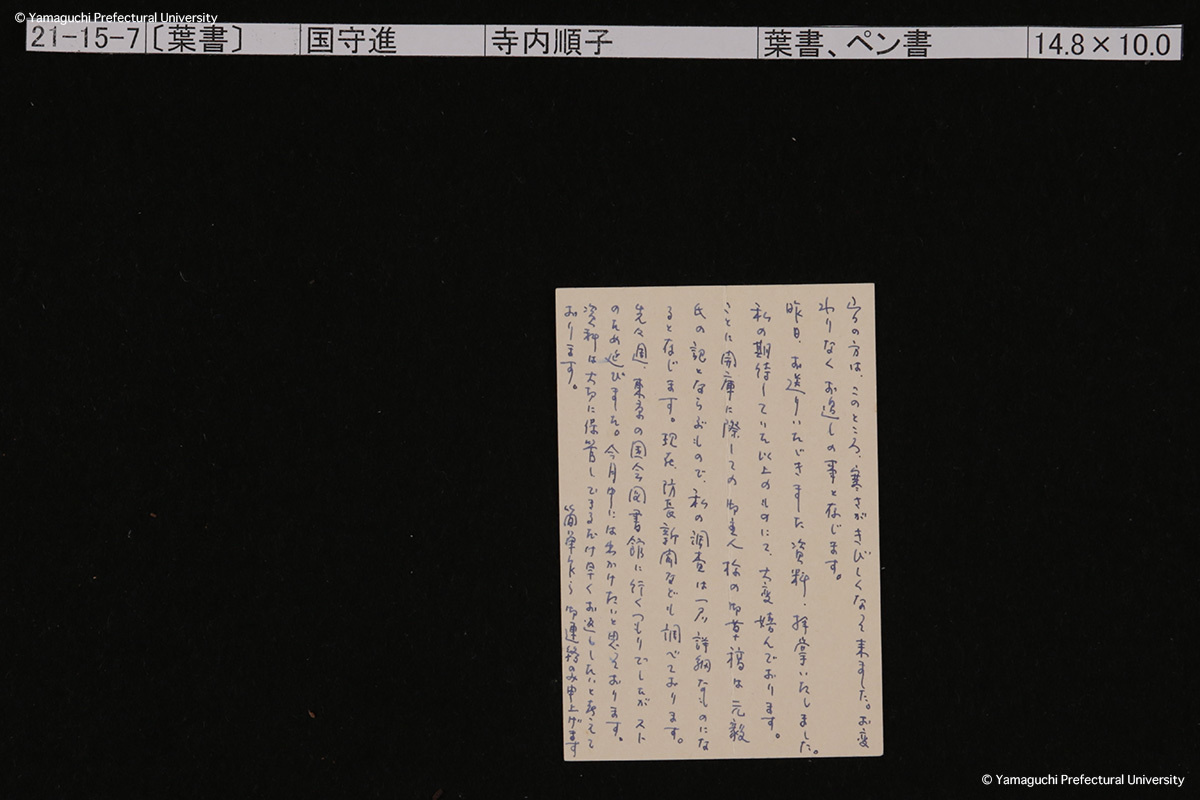 © Yamaguchi Prefectural University
21-15-7 〔葉書〕 国守進 寺内順子 葉書、ペン書 14.8×10.0
方は、このところ、寒さがきびしくなって来ました。お変
わりなくお過しの事と存じます。
昨日、お送りいただきました資料、拝掌いたしました。
私の期待していた以上のものにて、大変嬉んでおります。
ことに開庫に際しての御主人様の御草稿は元毅
氏の記とならぶもので、私の調査は一層詳細なものにな
ると存じます。現在、防長新聞なども調べております。
先々週、東京の国会図書館に行くつもりでしたがスト
のため延びました。今月中には出かけたいと思っております。
資料は大切に保管しできるだけ早くお返ししたいと考えて
おります。
簡単乍ら御連絡のみ申上げます
© Yamaguchi Prefectural University